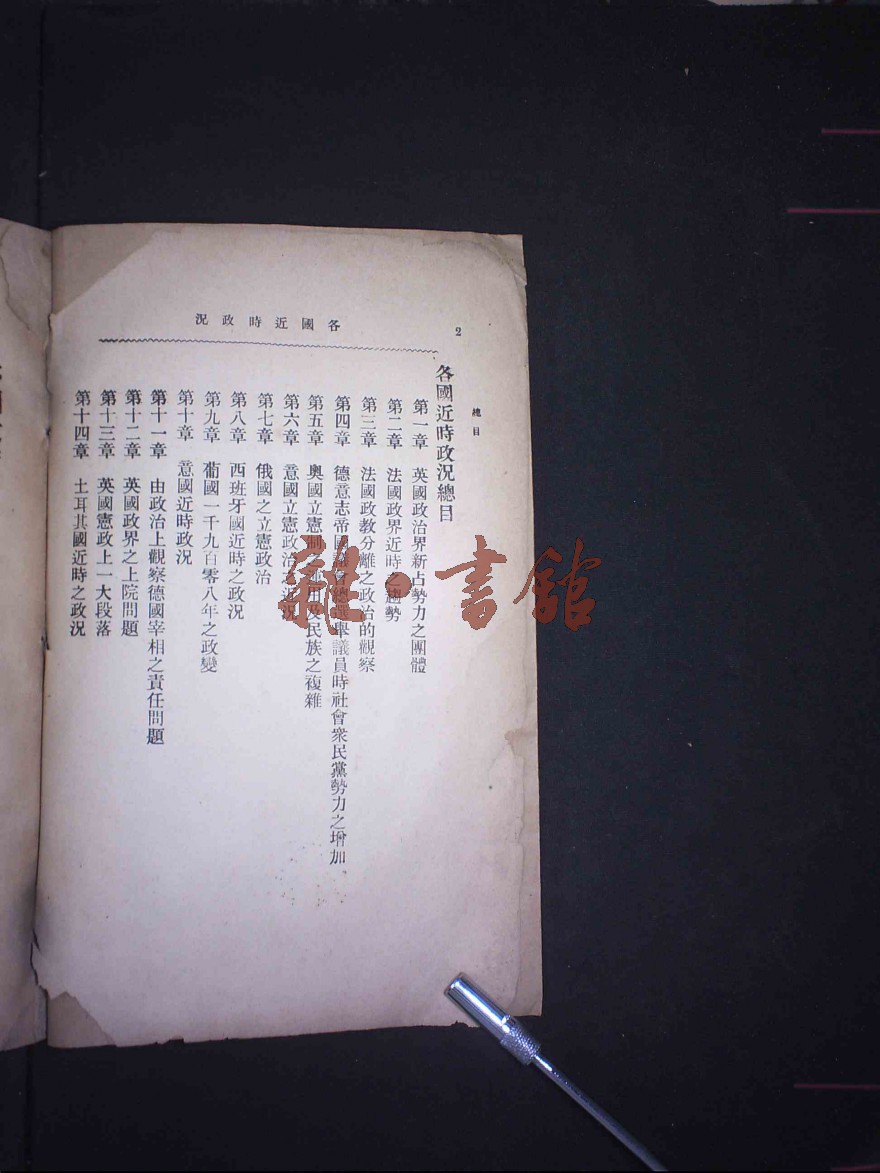 各國近時政況
2
總目
各國近時政況總目
第一章 英國政治界新占勢力之團體
第二章 法國政界近時之趨勢
第三章 法國政教分離之政治的觀察
第四章 德意志帝國議會總選舉議員時社會衆民黨勢力之增加
第五章 奧國立憲制之運用及民族之複雜
第六章 意國立憲政治之近況
第七章 俄國之立憲政治
第八章 西班牙國近時之政況
第九章 葡國一千九百零八年之政變
第十章 意國近時政況
第十一章 由政治上觀察德國宰相之責任問題
第十二章 英國政界之上院問題
第十三章 英國憲政上一大段落
第十四章 土耳其國近時之政況
雜·書館